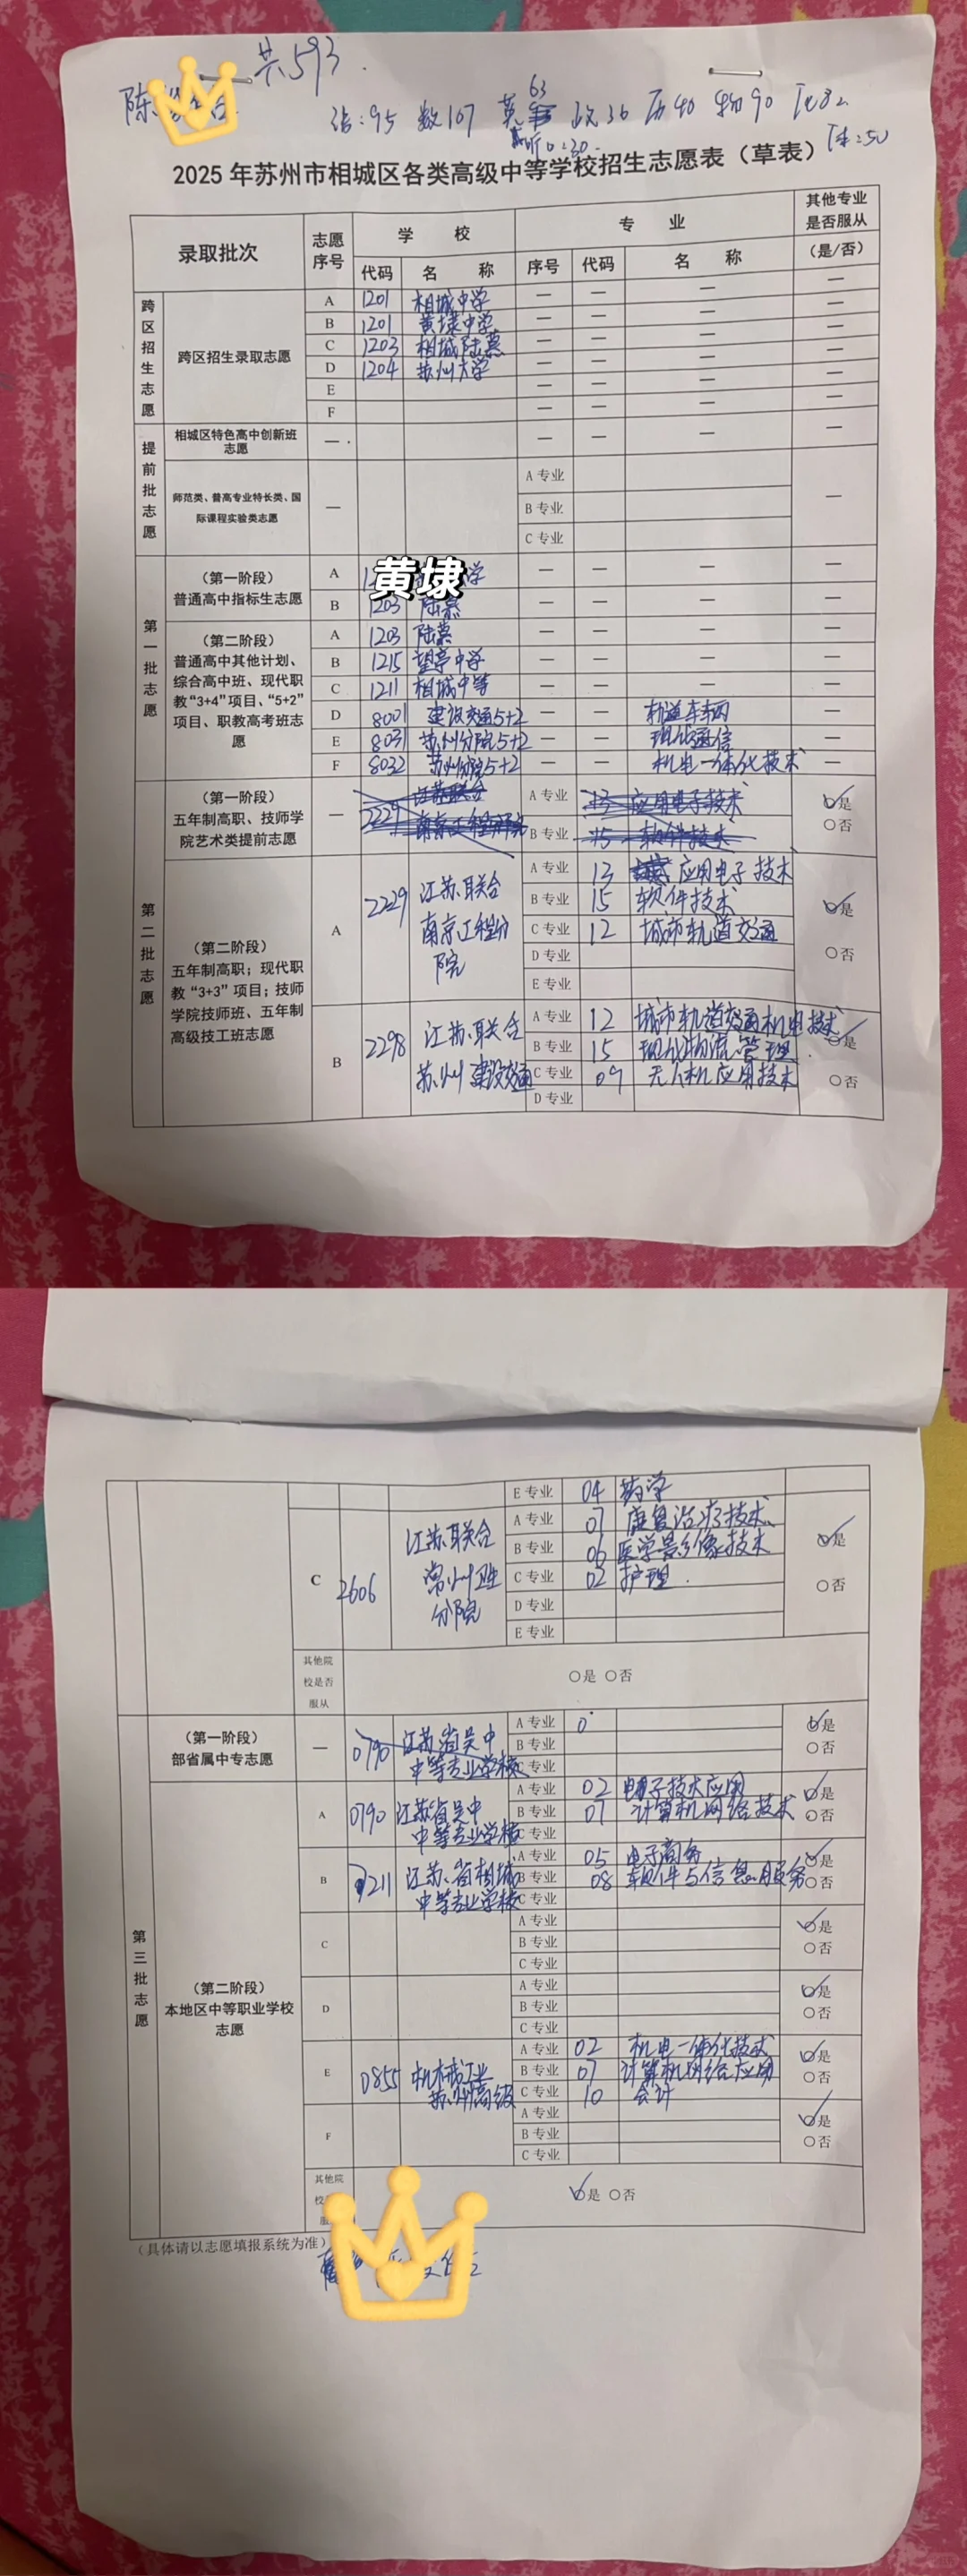 共593.
陈
语:95 数107 英63 政36 历40 物90 化32
听口:30. 体:50
2025年苏州市相城区各类高级中等学校招生志愿表（草表）
录取批次 志愿序号 学 校 专 业 其他专业是否服从
代码 名 称 序号 代码 名 称 （是/否）
跨区招生志愿 跨区招生录取志愿 A 1201 相城中学 — — — —
B 1201 黄埭中学 — — — —
C 1203 相城陆慕 — — — —
D 1204 苏州大学 — — — —
E — — — —
F — — — —
提前批志愿 相城区特色高中创新班志愿 — — — — —
师范类、普高专业特长类、国际课程实验类志愿 — A 专业 —
B 专业
C 专业
第一批志愿 （第一阶段）普通高中指标生志愿 A 黄埭 学 — — — —
B 1203 陆慕 — — — —
（第二阶段）普通高中其他计划、综合高中班、现代职教“3+4”项目、“5+2”项目、职教高考班志愿 A 1203 陆慕 — — — —
B 1215 望亭中学 — — — —
C 1211 相城中等 — — — —
D 8001 建设交通5+2 — — 轨道车辆 —
E 8031 苏州分院5+2 — — 现代通信 —
F 8032 苏州分院5+2 机电一体化技术 —
第二批志愿 （第一阶段）五年制高职、技师学院艺术类提前志愿 — 2229 江苏联合 A 专业 13 应用电子技术 是
南京工程分院 B 专业 15 软件技术 ○否
（第二阶段）五年制高职；现代职教“3+3”项目；技师学院技师班、五年制高级技工班志愿 A 2229 江苏联合南京工程分院 A 专业 13 应用电子技术
B 专业 15 软件技术 是
C 专业 12 城市轨道交通
D 专业 ○否
E 专业
B 2298 江苏联合苏州建设交通 A 专业 12 城市轨道交通机电技术
B 专业 15 现代物流管理 是
C 专业 09 无人机应用技术 ○否
D 专业
E 专业 04 药学
C 2606 江苏联合常州卫分院 A 专业 07 康复治疗技术
B 专业 06 医学影像技术 是
C 专业 02 护理. ○否
D 专业
E 专业
其他院校是否服从 ○是 ○否
第三批志愿 （第一阶段）部省属中专志愿 — 0790 江苏省吴中中等专业学校 A 专业 0 是
B 专业 ○否
C 专业
（第二阶段）本地区中等职业学校志愿 A 0790 江苏省吴中中等专业学校 A 专业 02 电子技术应用 是
B 专业 07 计算机网络技术 ○否
C 专业
B 211 江苏省相城中等专业学校 A 专业 05 电子商务 是
B 专业 08 软件与信息服务 ○否
C 专业
C A 专业 是
B 专业 ○否
C 专业
D A 专业 是
B 专业 ○否
C 专业
E 0855 机械工业苏州高级 A 专业 02 机电一体化技术 是
B 专业 07 计算机网络应用 ○否
C 专业 10 会计
F A 专业 是
B 专业 ○否
C 专业
其他院校 服 是 ○否
（具体请以志愿填报系统为准）